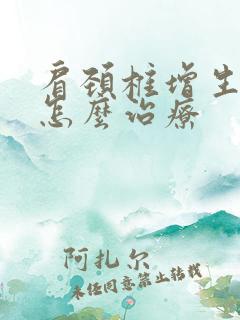 肩颈柱增生
怎麼治療
阿扎尔
未经同意禁止转载